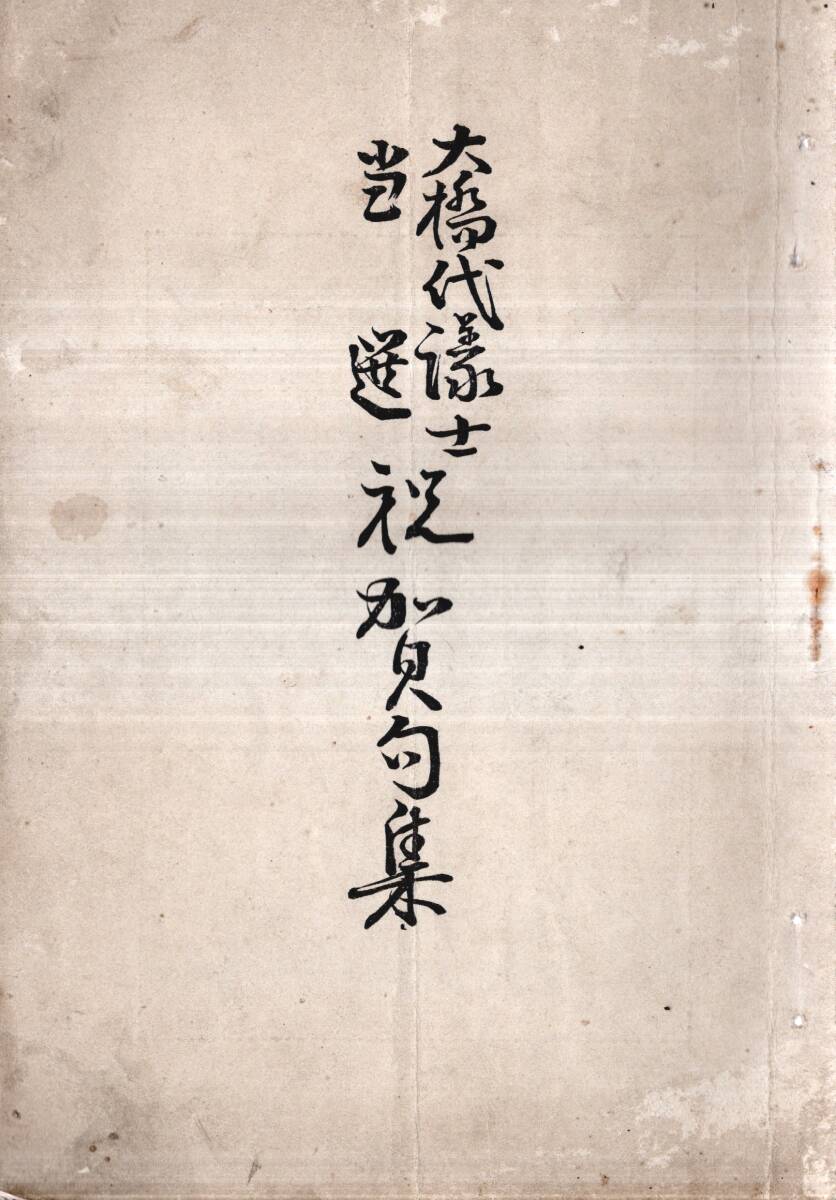 大橋代議士
当選
祝賀句集